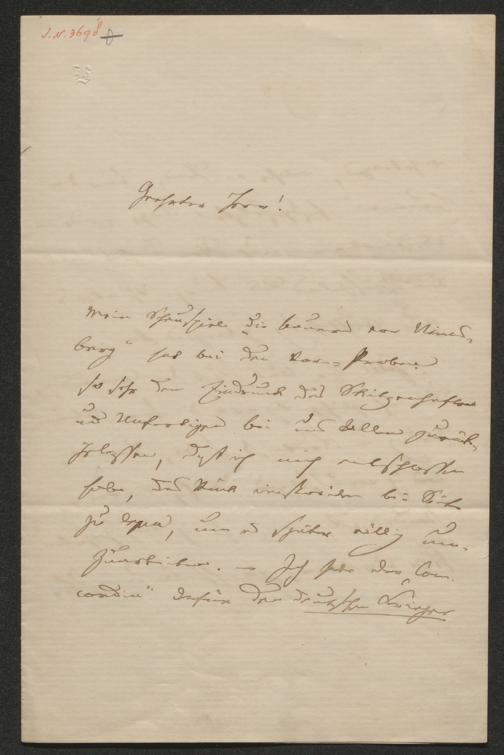 J.N. 3698
Geehrter Herr!
Mein Schauspiel „die Bauern von
berg" hat bei den Vor-Proben
so sehr den Eindruck des Skizzenhaften
und Unfertigen bei uns Allen zurück-
gelassen, daß ich mich entschlossen
habe, das Stück einstweilen bei Seite
zu legen, um es später völlig um-
zuarbeiten. — Ich habe der „Con-
cordia" dafür den deutschen Krieger